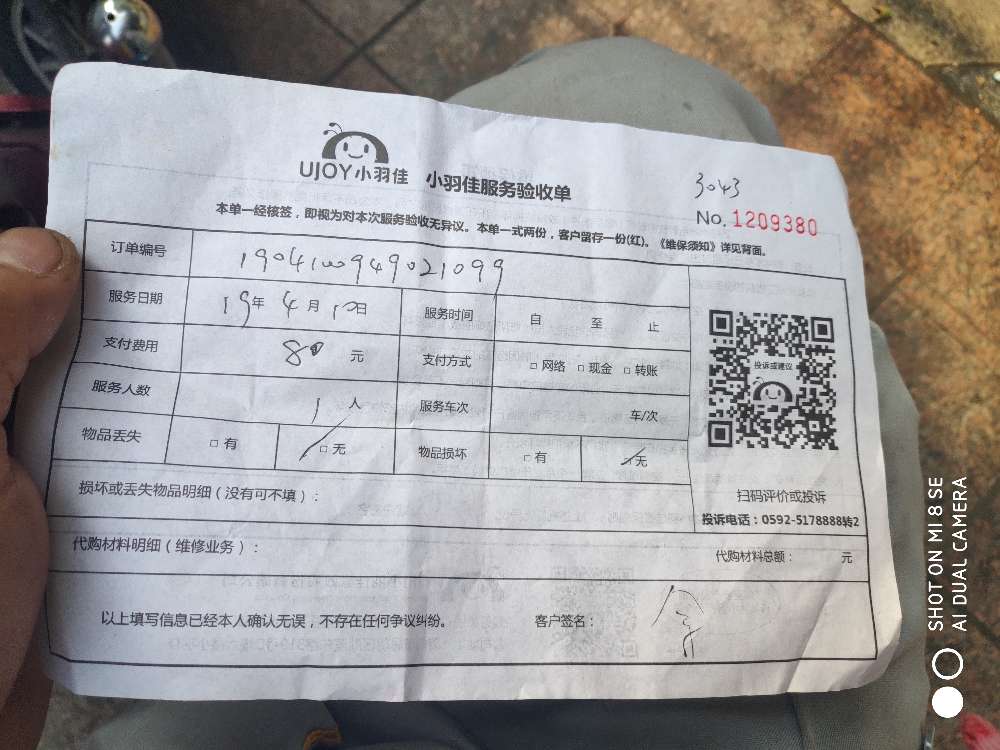 UJOY小羽佳 小羽佳服务验收单
3043
No. 1209380
本单一经核签，即视为对本次服务验收无异议。本单一式两份，客户留存一份(红)。《维保须知》详见背面。
订单编号 1904100949021099
服务日期 19年 4月 10日 服务时间 自 至 止
支付费用 80 元 支付方式 □ 网络 □ 现金 □ 转账
服务人数 1 人 服务车次 车/次
物品丢失 □ 有 □ 无 物品损坏 □ 有 □ 无
投诉或建议
扫码评价或投诉
投诉电话：0592-5178888转2
损坏或丢失物品明细（没有可不填）：
代购材料明细（维修业务）： 代购材料总额： 元
以上填写信息已经本人确认无误，不存在任何争议纠纷。 客户签名：
SHOT ON MI 8 SE
AI DUAL CAMERA